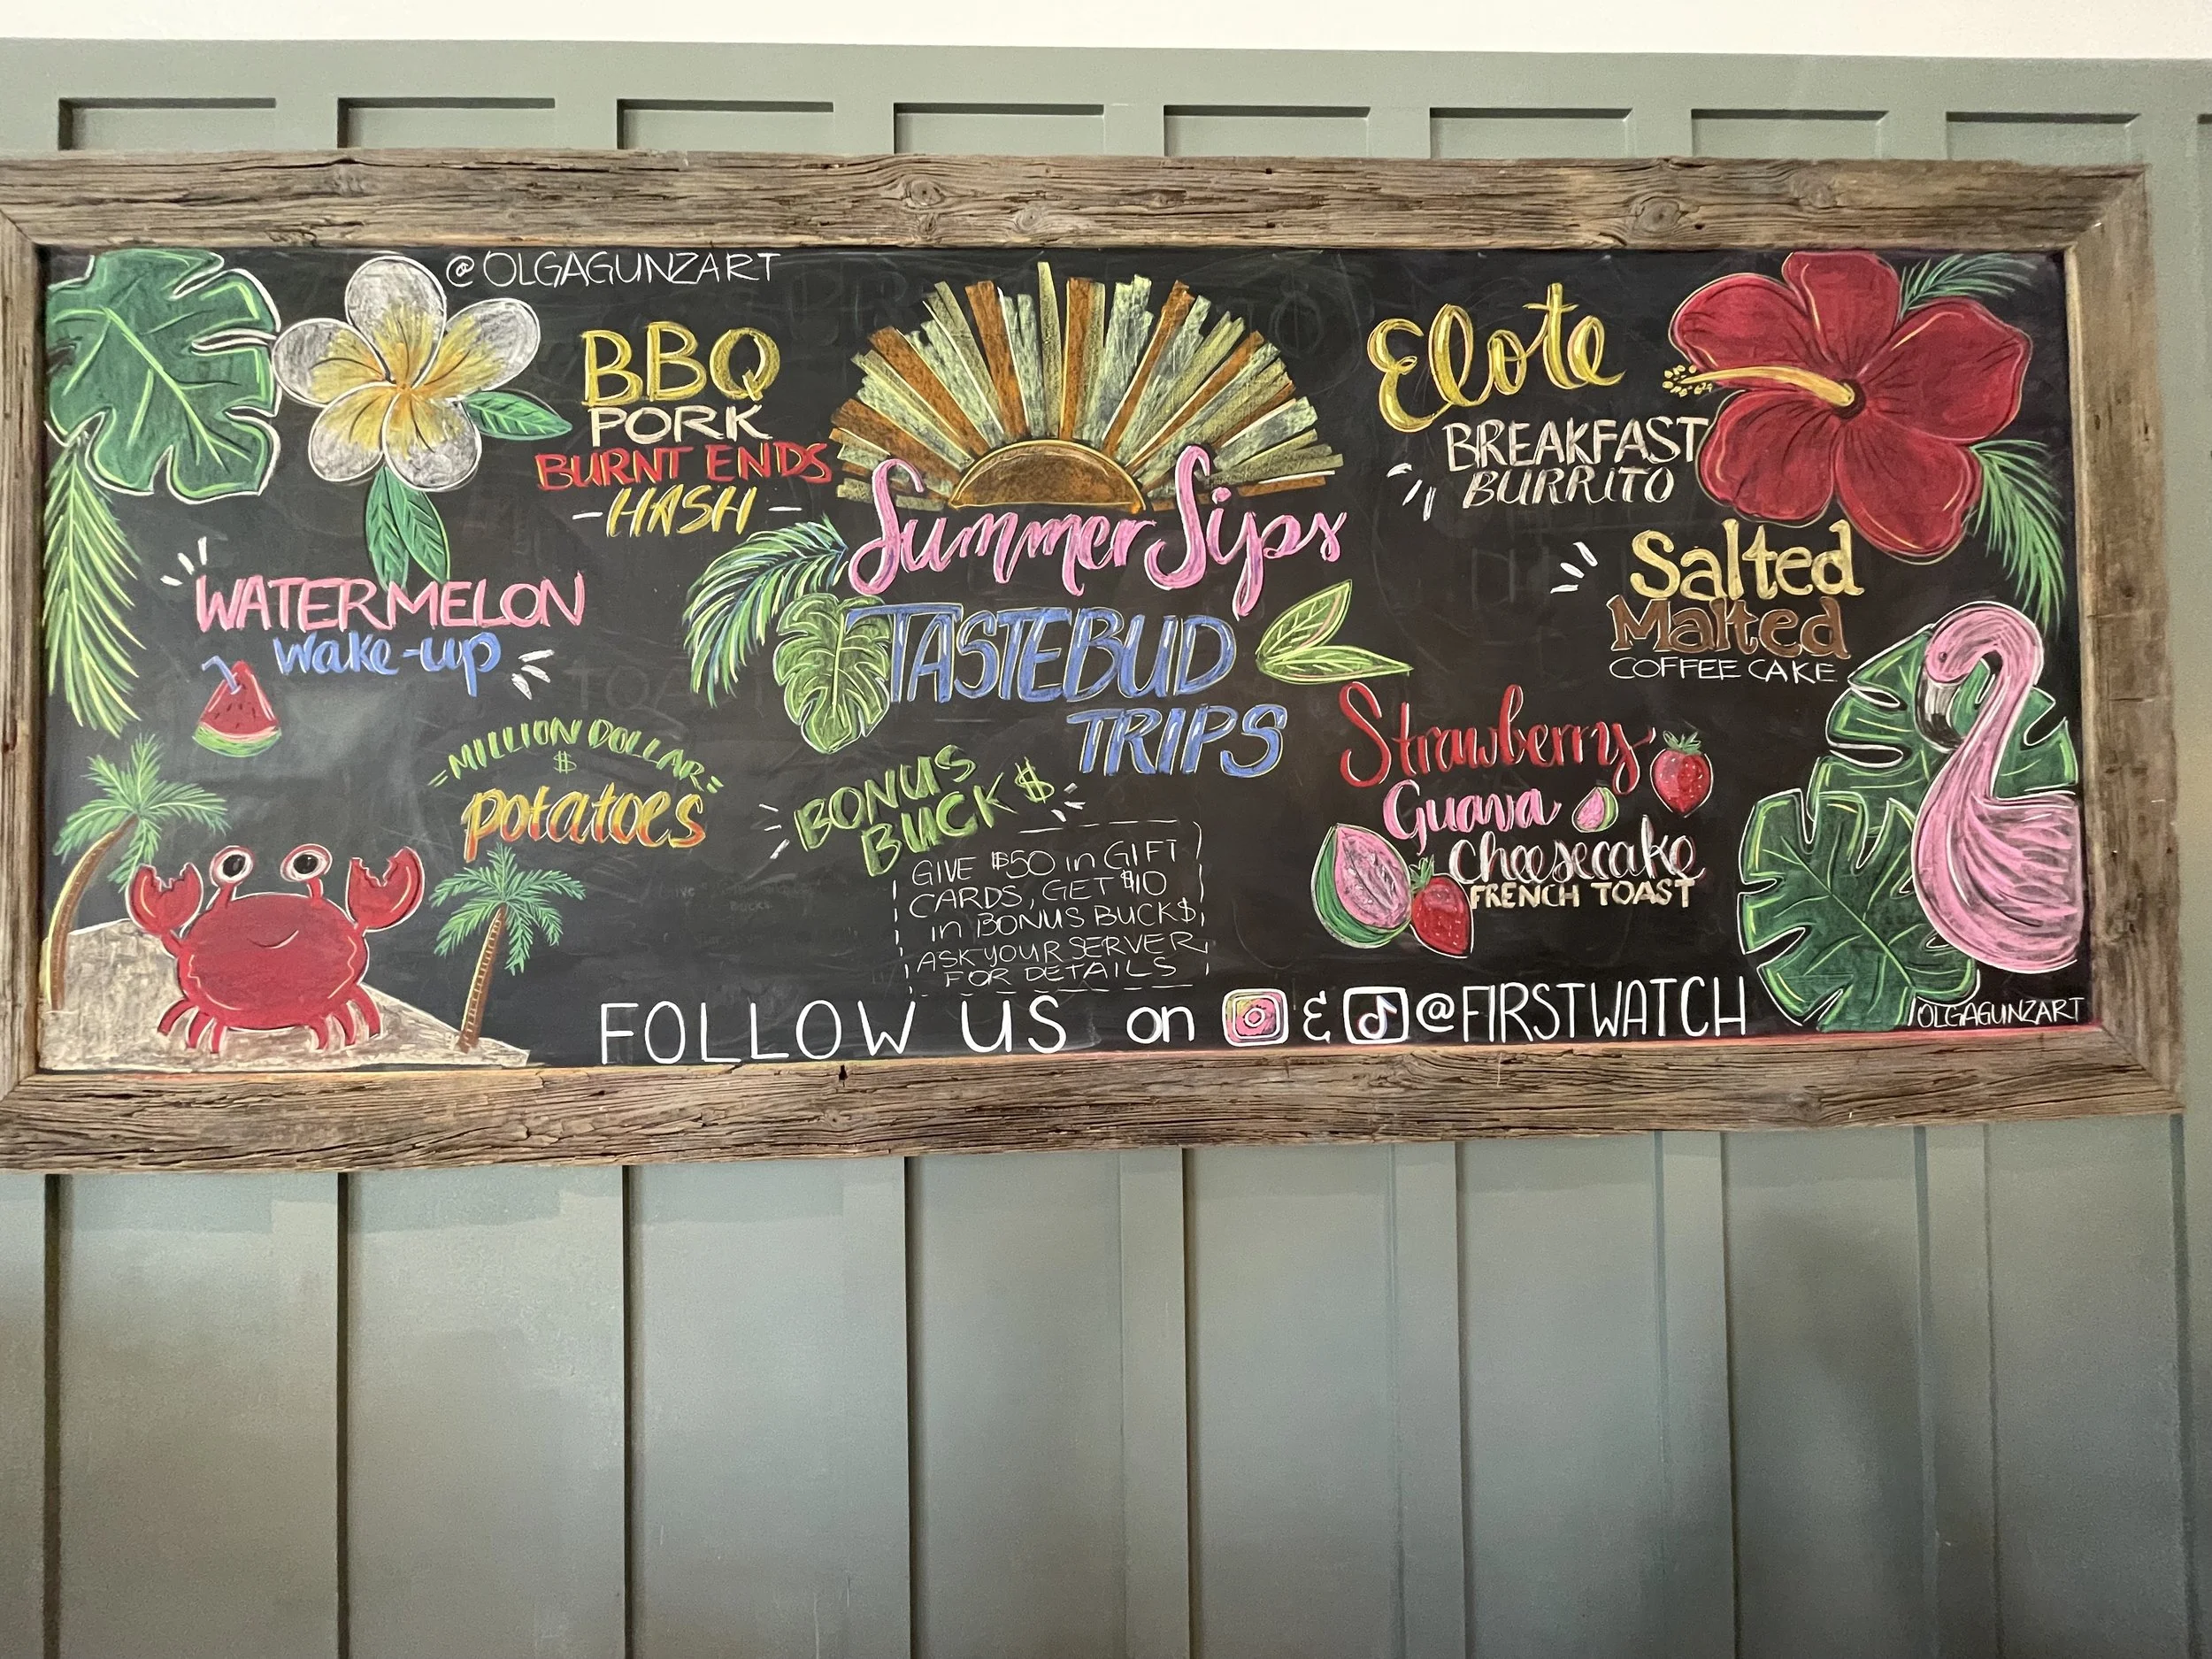 @OLGAGUNZART
BBQ
PORK
BURNT ENDS
-HASH-
WATERMELON
wake-up
MILLION DOLLAR
$
potatoes
Summer Sips
TASTEBUD
TRIPS
BONUS
BUCK$
GIVE $50 in GIFT
CARDS, GET $10
in BONUS BUCK$,
ASK YOUR SERVER
FOR DETAILS
Elote
BREAKFAST
BURRITO
Salted
Malted
COFFEE CAKE
Strawberry
Guava
cheesecake
FRENCH TOAST
FOLLOW US on & @FIRSTWATCH
OLGAGUNZART